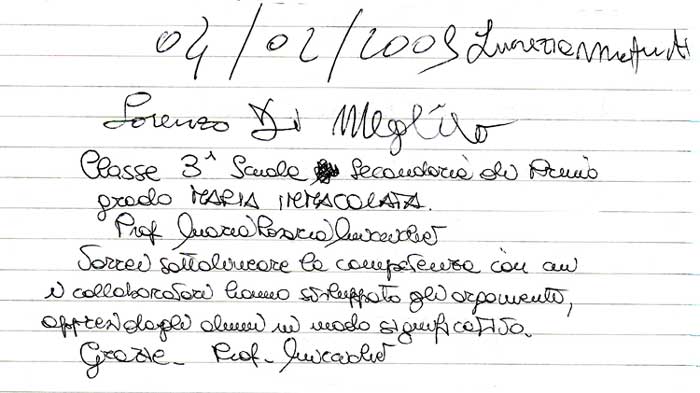 04/02/2009 Lucrezia
Lorenzo Di Meglio
Classe 3^ Scuola Secondaria di Primo
grado MARIA IMMACOLATA.
Prof. Maria Rosaria
Vorrei sottolineare la competenza con cui
i collaboratori hanno sviluppato gli argomenti,
appresi dagli alunni in modo significativo.
Grazie - Prof.